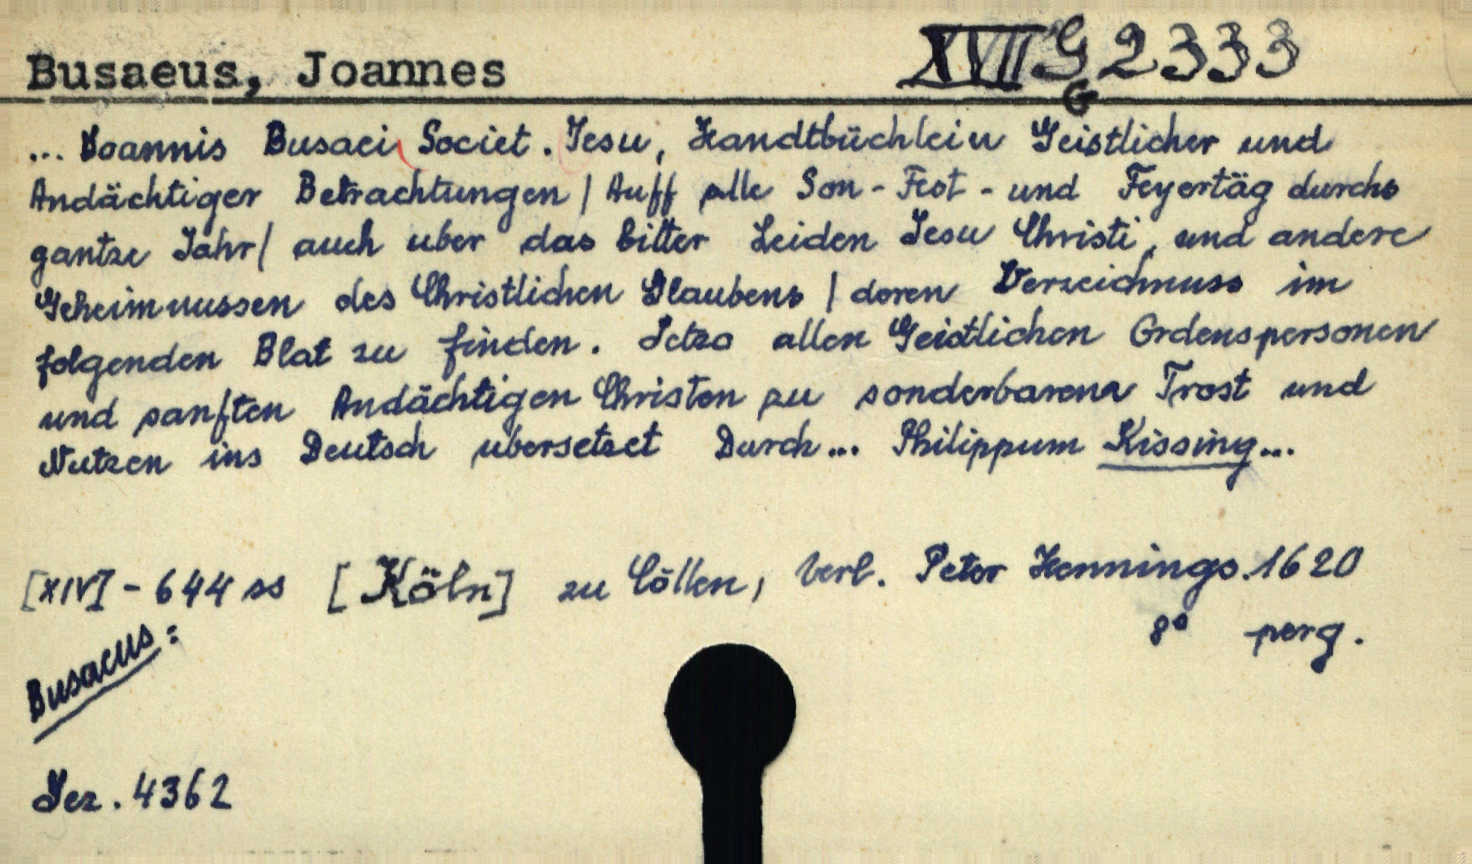 Busaeus, Joannes XVII G 2333
G
... Joannis Busaei Societ. Iesu, Handtbüchlein Geistlicher und
Andächtiger Betrachtungen / Auff alle Son-Fest-und Feyertäg durchs
gantze Jahr / auch uber das bitter Leiden Jesu Christi, und andere
Geheimnussen des Christlichen Glaubens / deren Verzeichnuss im
folgenden Blat zu finden. Jetzo allen Geistlichen Ordenspersonen
und sanften Andächtigen Christen zu sonderbarem Trost und
Nutzen ins Deutsch ubersetzet Durch... Philippum Kissing...
[XIV] - 644 ss [Köln] zu Cöllen, Verl. Peter Hennings. 1620
8° perg.
Busaeus:
Jez. 4362